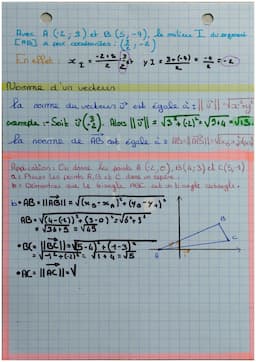 Avec A(-2; 3) et B(5; -7), le milieu I du segment
[AB] a pour coordonnées : (3/2; -2)
En effet x_I = (-2+5)/2 = 3/2 et y_I = (3+(-7))/2 = -4/2 = -2
Norme d'un vecteur
La norme du vecteur v⃗ est égale à : ||v⃗|| = √x²+y²
exemple : - Soit v⃗(3/-2). Alors ||v⃗|| = √3²+(-2)² = √9+4 = √13.
La norme de AB⃗ est égale à : AB = ||AB⃗|| =
Application : On donne les points A(-2; 0), B(4; 3) et C(5; 1)
a = Placer les points A, B et C dans un repère.
b = Démontrer que le triangle ABC est un triangle rectangle.
b • AB = ||AB⃗|| = √(x_B - x_A)² + (y_B - y_A)²
AB = √(4-(-2))² + (3-0)² = √6²+3²
= √36+9 = √45
• BC = ||BC⃗|| = √(5-4)² + (1-3)²
= √1²+(-2)² = √1+4 = √5
• AC = ||AC⃗|| = √
A
B
C